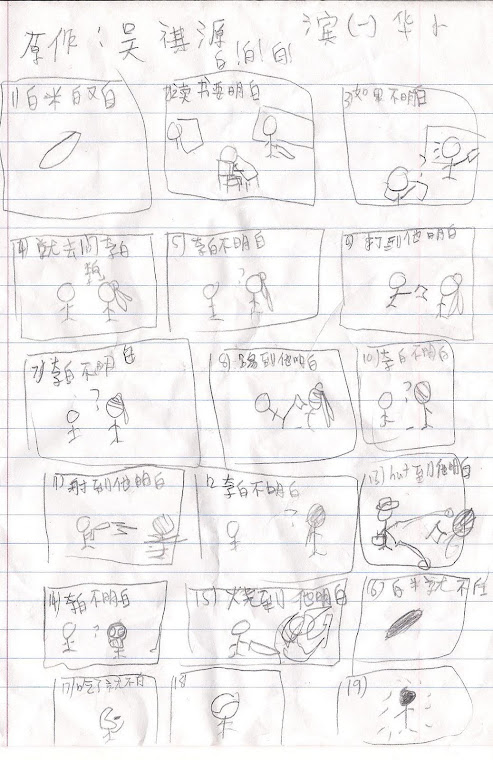 原作：吴祺源 滨(一)华小
白！白！白！
1) 白米白又白
2) 读书要明白
3) 如果不明白
4) 就去问李白
5) 李白不明白
6) 打到他明白
7) 李白不明白
8) 踢到他明白
10) 李白不明白
11) 射到他明白
12 李白不明白
13) hut到他明白
14) 李白不明白
15) 火烧到他明白
16) 白米就不白
17) 吃了就不白
18
19)